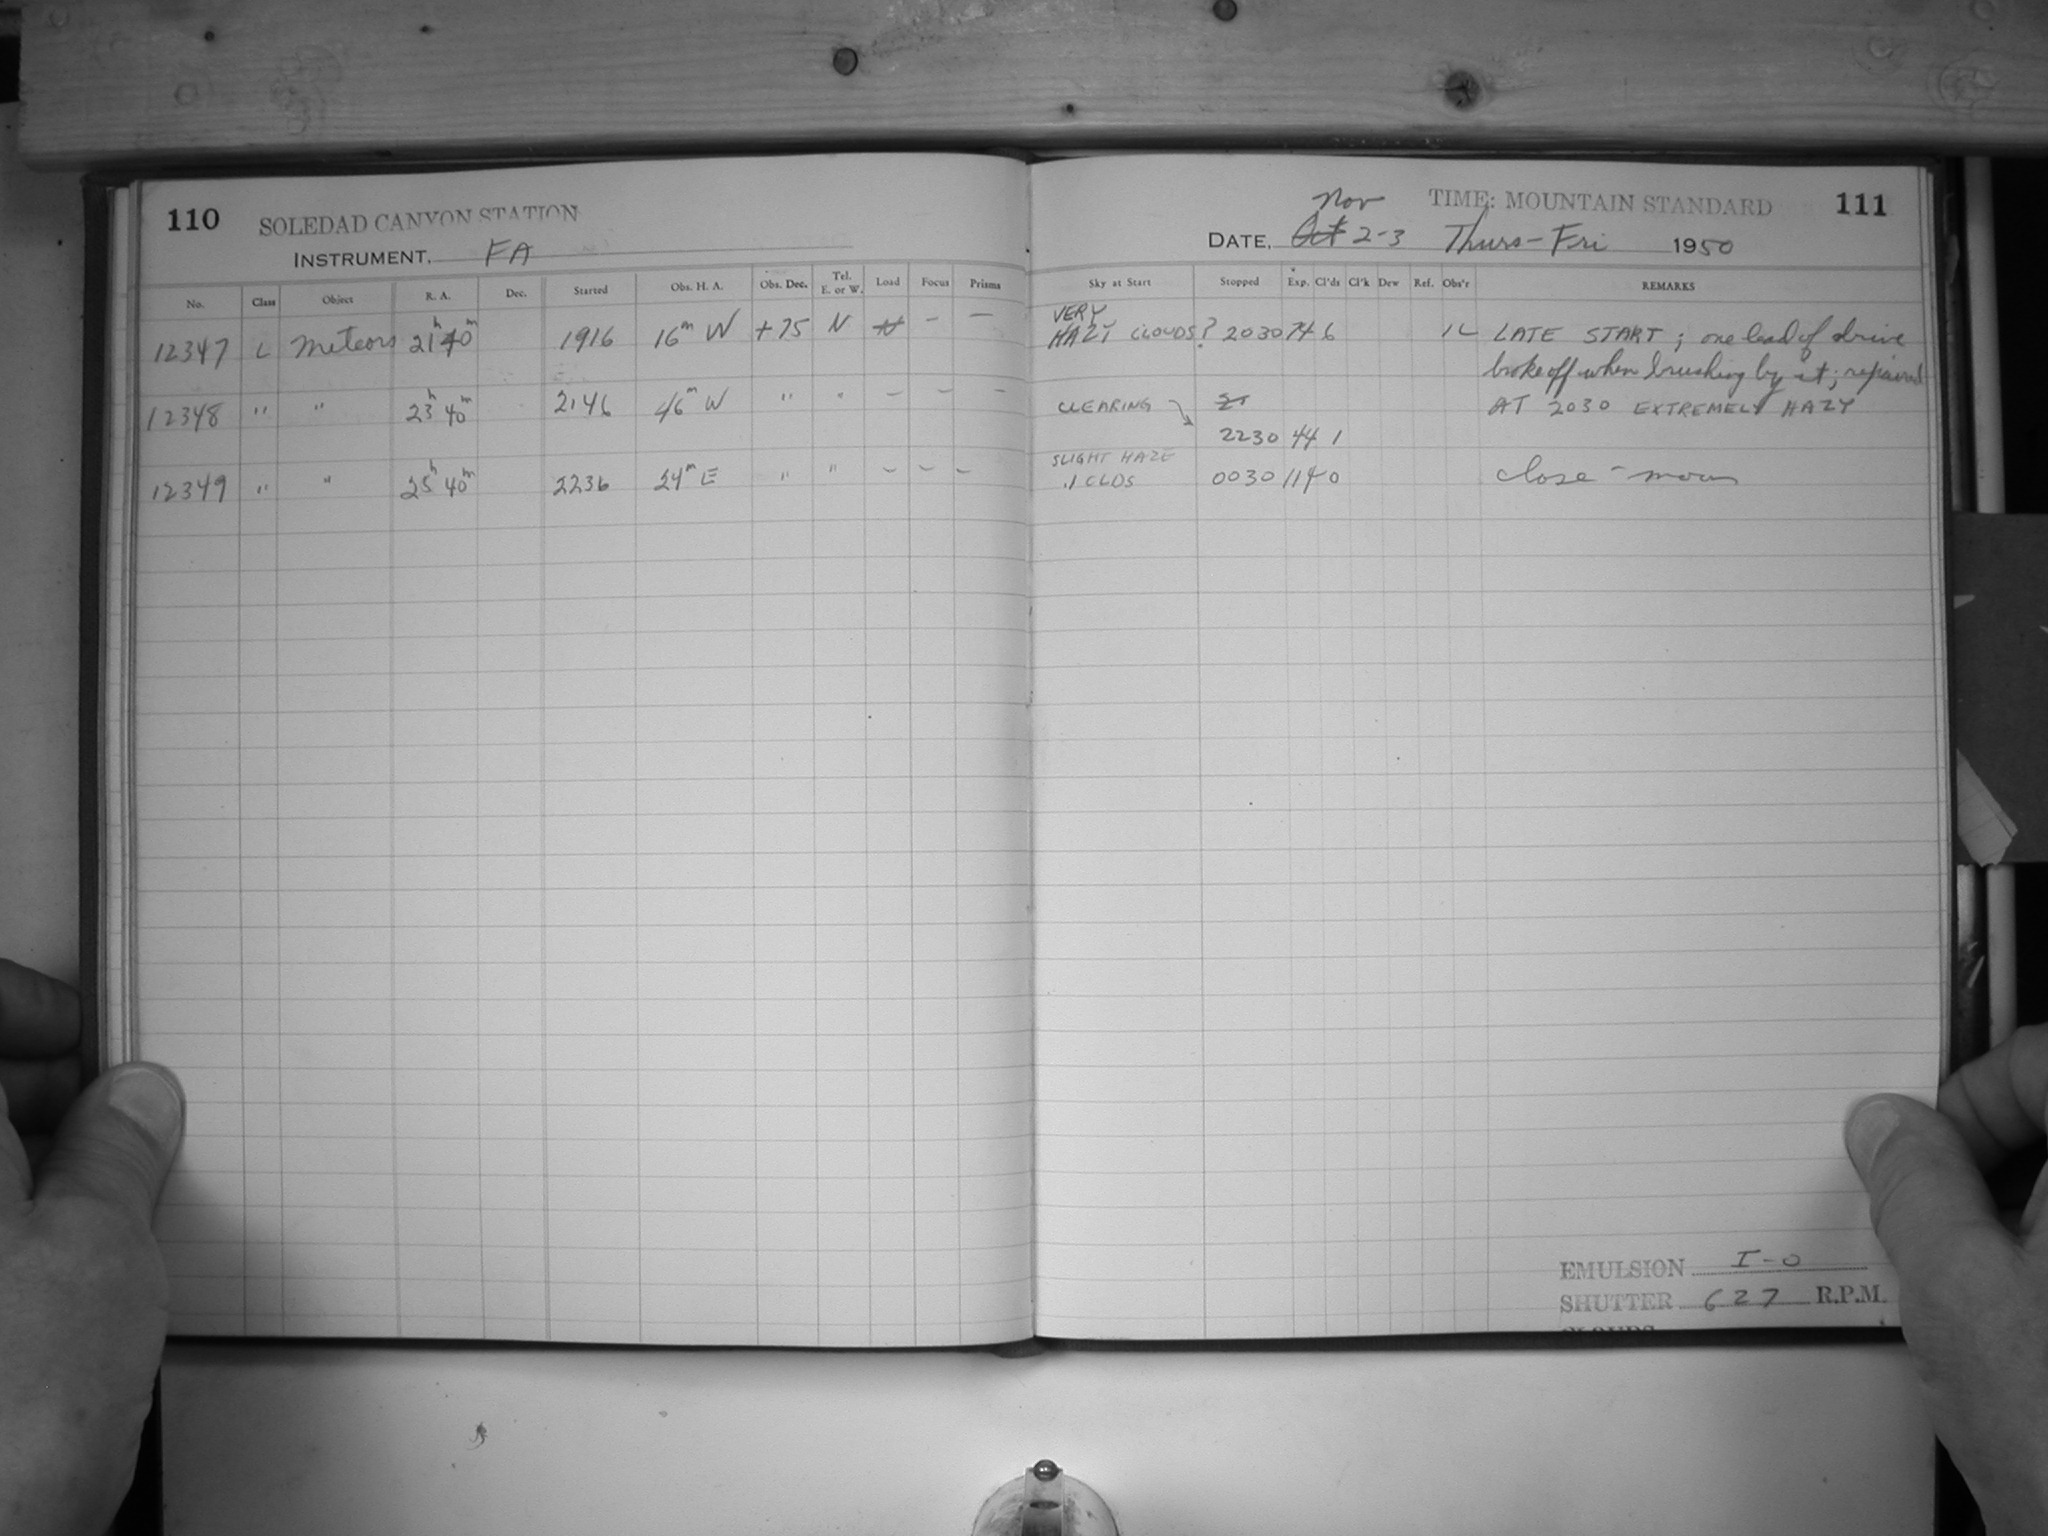 110 SOLEDAD CANYON STATION
INSTRUMENT. FA
No. Class Object R. A. Dec. Started Obs. H. A. Obs. Dec. Tel. E. or W. Load Focus Prisms
12347 L Meteors 21h 40m 1916 16m W +75 N N — —
12348 " " 23h 40m 2146 46m W " " — — —
12349 " " 25h 40m 2236 24m E " " — — —
Nov TIME: MOUNTAIN STANDARD 111
DATE, Oct 2-3 Thurs-Fri 1950
Sky at Start Stopped Exp. Cl'ds Cl'k Dew Ref. Obs'r REMARKS
VERY
HAZY CLOUDS? 2030 74 6 1L LATE START; one lead of drive
broke off when brushing by it; repaired
CLEARING 21 AT 2030 EXTREMELY HAZY
2230 44 1
SLIGHT HAZE
.1 CLDS 0030 114 0 close - moon
EMULSION I-O
SHUTTER 627 R.P.M.
CLOUDS